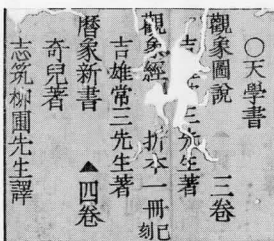 〇天學書
觀象圖說 三卷
吉 三先生著
觀象經 折本一冊已刻
吉雄常三先生著
暦象新書 ▲四卷
奇兒著
志筑柳圃先生譯